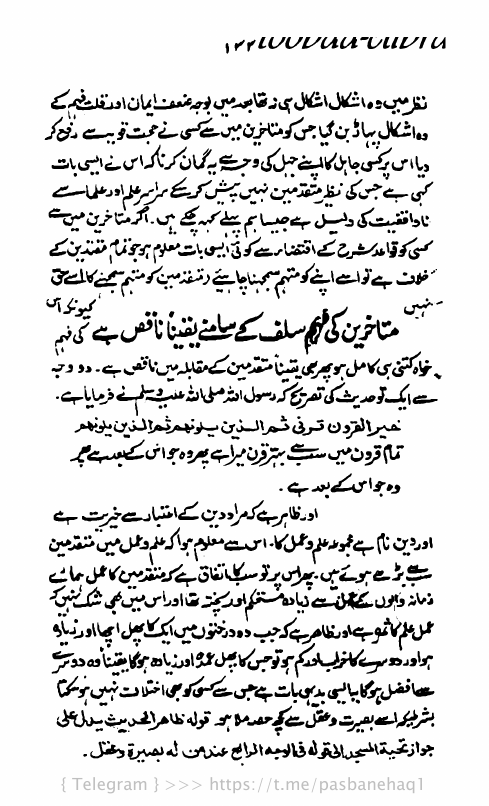 ۱۲۲ toobaa-elibra
نظر میں وہ اشکال اشکال ہی نہ تھا بعد میں بوجہ ضعف ایمان اور قلت فہم کے
وہ اشکال پہاڑ بن گیا جس کو متاخرین میں سے کسی نے حجت قویہ سے رفع کر
دیا اس پر کسی جاہل کا اپنے جہل کی وجہ سے یہ گمان کرنا کہ اس نے ایسی بات
کہی ہے جس کی نظیر متقدمین نہیں پیش کر سکے سراسر علم اور علما سے
ناواقفیت کی دلیل ہے جیسا ہم پہلے کہہ چکے ہیں۔ اگر متاخرین میں سے
کسی کو قواعد شرح کے اقتضاء سے کوئی ایسی بات معلوم ہو جو تمام متقدمین کے
خلاف ہے تو اسے اپنے کو متہم سمجھنا چاہئے متقدمین کو متہم سمجھنے کا اسے حق
نہیں متاخرین کی فہم سلف کے سامنے یقیناً ناقص ہے کیونکہ اس کی فہم
خواہ کتنی ہی کامل ہو پھر بھی یقیناً متقدمین کے مقابلہ میں ناقص ہے۔ دو وجہ
سے ایک تو حدیث کی تصریح کہ رسول اللہ صلی اللہ علیہ وسلم نے فرمایا ہے۔
خیر القرون قرنی ثم الذین یلونهم ثم الذین یلونهم
تمام قرون میں سب سے بہتر قرن میرا ہے پھر وہ جو اس کے بعد ہے پھر
وہ جو اس کے بعد ہے۔
اور ظاہر ہے کہ مراد دین کے اعتبار سے خیریت ہے
اور دین نام ہے مجموعہ علم و عمل کا۔ اس سے معلوم ہوا کہ علم و عمل میں متقدمین
سب سے بڑھے ہوئے ہیں۔ پھر اس پر تو سب کا اتفاق ہے کہ متقدمین کا عمل ہمارے
زمانہ والوں کے عمل سے زیادہ مستحکم اور پختہ تھا اور اس میں بھی شک نہیں کہ
عمل علم کا ثمرہ ہے اور ظاہر ہے کہ جب دو درختوں میں ایک کا پھل اچھا اور زیادہ
ہو اور دوسرے کا خراب اور کم ہو تو جس کا پھل عمدہ اور زیادہ ہوگا یقیناً وہ دوسرے
سے افضل ہوگا یہ ایسی بدیہی بات ہے جس سے کسی کو بھی اختلاف نہیں ہو سکتا
بشرطیکہ اسے بصیرت و عقل سے کچھ حصہ ملا ہو۔ قوله ظاهر الحدیث یدل علی
جواز تحیة المسجد الی قوله فالوجه الرابع عند من له بصیرة و عقل۔
{ Telegram } >>> https://t.me/pasbanehaq1